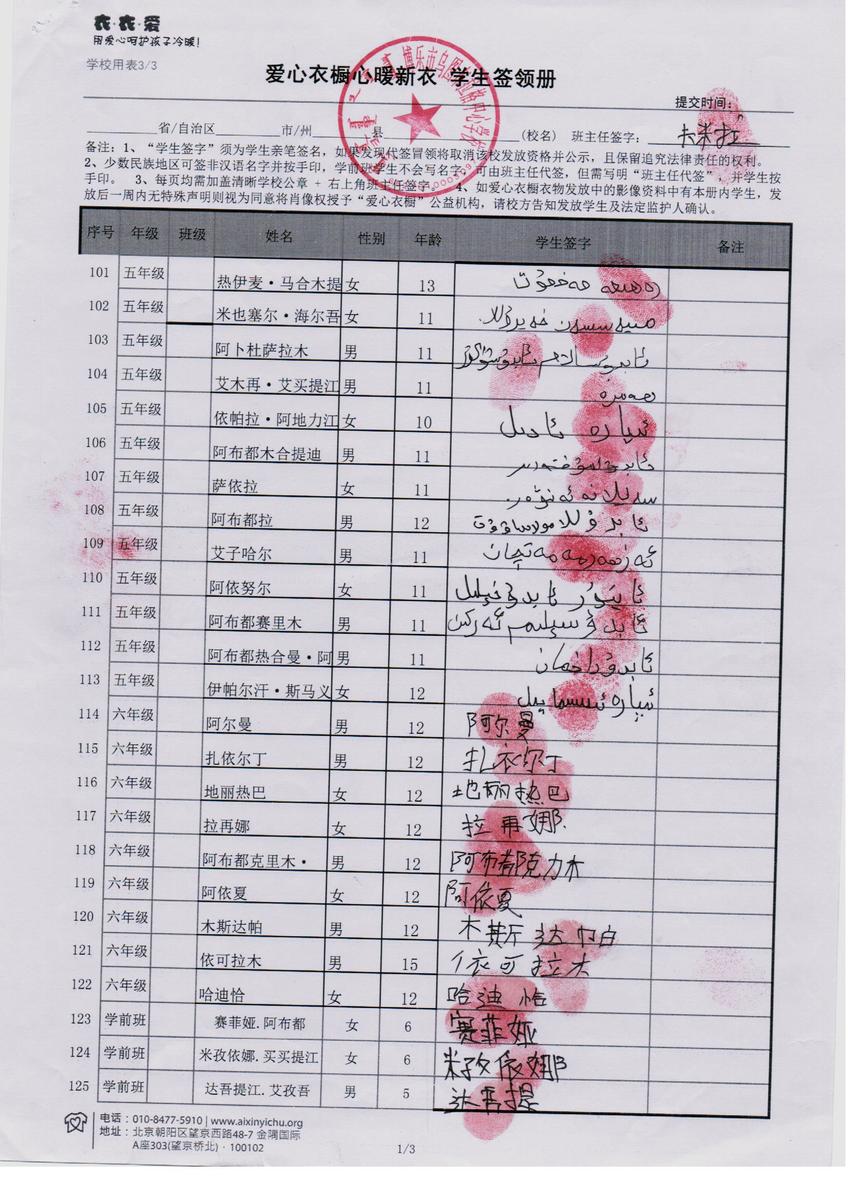 衣·衣·爱
用爱心呵护孩子冷暖!
学校用表3/3
爱心衣橱心暖新衣 学生签领册
提交时间:
省/自治区 市/州 县 (校名) 班主任签字: 卡米拉
备注:1、“学生签字”须为学生亲笔签名,如果发现代签冒领将取消该校发放资格并公示,且保留追究法律责任的权利。
2、少数民族地区可签非汉语名字并按手印,学前班学生不会写名字,可由班主任代签,但需写明“班主任代签”,并学生按
手印。 3、每页均需加盖清晰学校公章 + 右上角班主任签字。 4、如爱心衣橱衣物发放中的影像资料中有本册内学生,发
放后一周内无特殊声明则视为同意将肖像权授予“爱心衣橱”公益机构,请校方告知发放学生及法定监护人确认。
序号 年级 班级 姓名 性别 年龄 学生签字 备注
101 五年级 热伊麦·马合木提 女 13
102 五年级 米也塞尔·海尔吾 女 11
103 五年级 阿卜杜萨拉木 男 11
104 五年级 艾木再·艾买提江 男 11
105 五年级 依帕拉·阿地力江 女 10 ئىپارە ئادىل
106 五年级 阿布都木合提迪 男 11
107 五年级 萨依拉 女 11
108 五年级 阿布都拉 男 12
109 五年级 艾子哈尔 男 11
110 五年级 阿依努尔 女 11
111 五年级 阿布都赛里木 男 11
112 五年级 阿布都热合曼·阿 男 11
113 五年级 伊帕尔汗·斯马义 女 12
114 六年级 阿尔曼 男 12 阿尔曼
115 六年级 扎依尔丁 男 12 扎衣尔丁
116 六年级 地丽热巴 女 12 地丽热巴
117 六年级 拉再娜 女 12 拉再娜
118 六年级 阿布都克里木· 男 12 阿布都克力木
119 六年级 阿依夏 女 12 阿依夏
120 六年级 木斯达帕 男 12 木斯达帕
121 六年级 依可拉木 男 15 依可拉木
122 六年级 哈迪恰 女 12 哈迪恰
123 学前班 赛菲娅.阿布都 女 6 赛菲娅
124 学前班 米孜依娜.买买提江 女 6 米孜依娜
125 学前班 达吾提江.艾孜吾 男 5 达吾提
电话:010-8477-5910 | www.aixinyichu.org
地址:北京朝阳区望京西路48-7 金隅国际
A座303(望京桥北)·100102
1/3